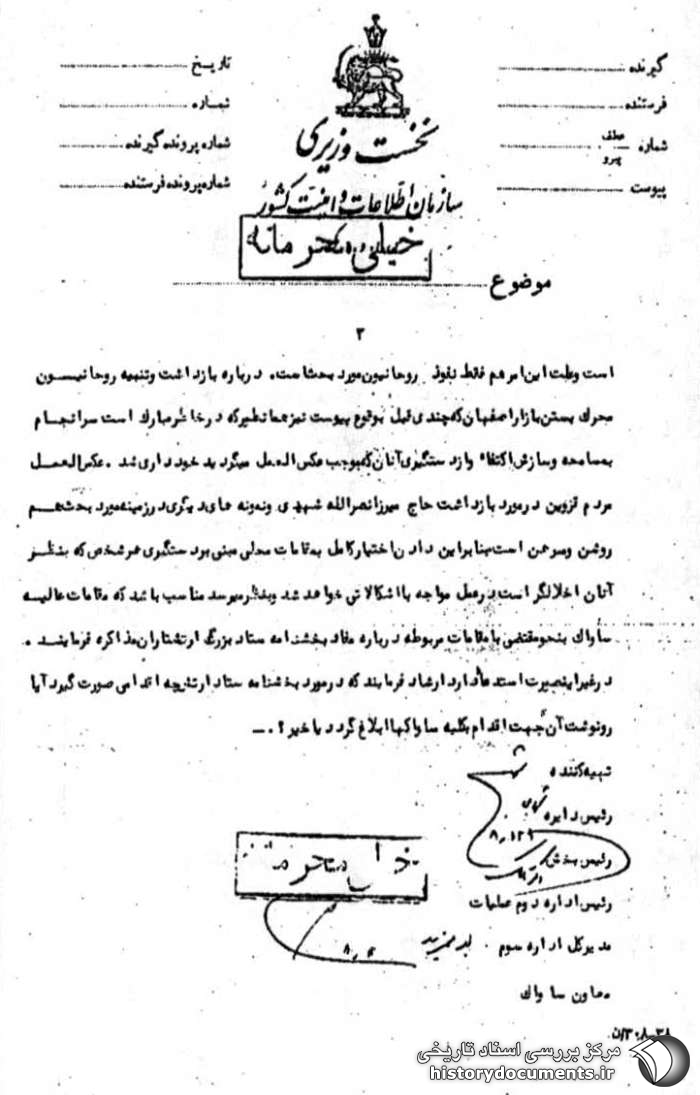 گیرنده
تاریخ
فرستنده
شماره
شماره عطف پیرو
شماره پرونده گیرنده
پیوست
شماره پرونده فرستنده
نخست وزیری
سازمان اطلاعات و امنیت کشور
خیلی محرمانه
موضوع
۳
است وعلت این امر هم فقط نفوذ روحانیون مورد بحث است. درباره بازداشت وتنبیه روحانیون
محرک بستن بازار اصفهان که چندی قبل بوقوع پیوست نیز همانطیر که درخاطر مبارک است سرانجام
بمسامحه وسازش اکتفاء واز دستگیری آنان که موجب عکس العمل میگردید خودداری شد. عکس العمل
مردم قزوین درمورد بازداشت حاج میرزا نصرالله شهیدی ونمونه های دیگری در زمینه مورد بحث هم
روشن ومبرهن است بنابراین دادن اختیار کامل بمقامات محلی مبنی بر دستگیری هر شخص که بنظر
آنان اخلالگر است در عمل مواجه با اشکالاتی خواهد شد وبنظر میرسد مناسب باشد که مقامات عالیه
ساواک بنحو مقتضی با مقامات مربوطه درباره مفاد بخشنامه ستاد بزرگ ارتشتاران مذاکره فرمایند.
درغیر اینصورت استدعا دارد ارشاد فرمایند که درمورد بخشنامه ستاد ارتش چه اقدامی صورت گیرد آیا
رونوشت آن جهت اقدام بکلیه ساواکها ابلاغ گردد یا خیر؟.—
تهیه کننده
رئیس دایره
رئیس بخش
۸/۱۲۹
خیلی محرمانه
رئیس اداره دوم عملیات
مدیرکل اداره سوم
۸/۶
معاون ساواک
۳۸-۳۰۸/ن
مرکز بررسی اسناد تاریخی
historydocuments.ir